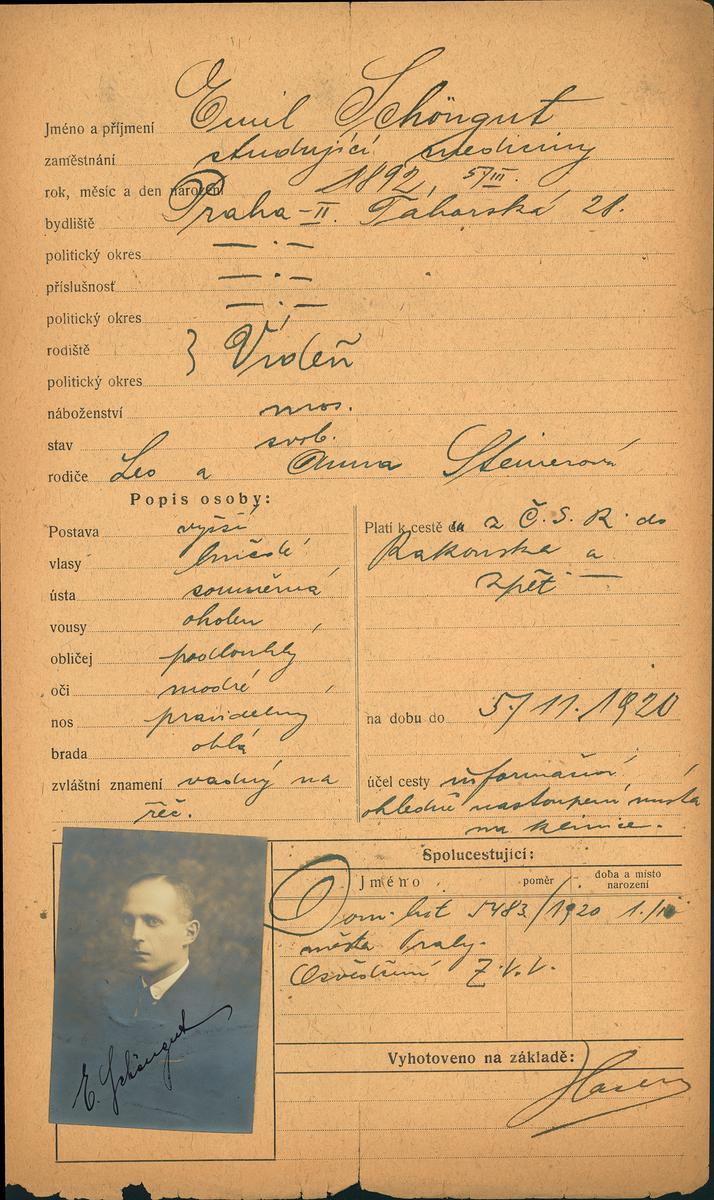 Jméno a příjmení Emil Schöngut
zaměstnání studující mediciny
rok, měsíc a den narození 1892, 5/III.
bydliště Praha-II. Táborská 28.
politický okres — . —
příslušnost — . —
politický okres — . —
rodiště } Vídeň
politický okres
náboženství mos.
stav svob.
rodiče Leo a Anna Steinerová
Popis osoby:
Postava vyšší
vlasy hnědé
ústa souměrná
vousy oholen
obličej podlouhlý
oči modré
nos pravidelný
brada oblá
zvláštní znamení vadný na
řeč.
Platí k cestě z Č. S. R. do
Rakouska a
zpět —
na dobu do 5/11. 1920
účel cesty informační
ohledně nastoupení místa
na klinice.
E. Schöngut
Spolucestující:
Jméno poměr doba a místo narození
Dom. list 5483/1920 1./
města Prahy.
Osvědčení Z.V.V.
Vyhotoveno na základě: